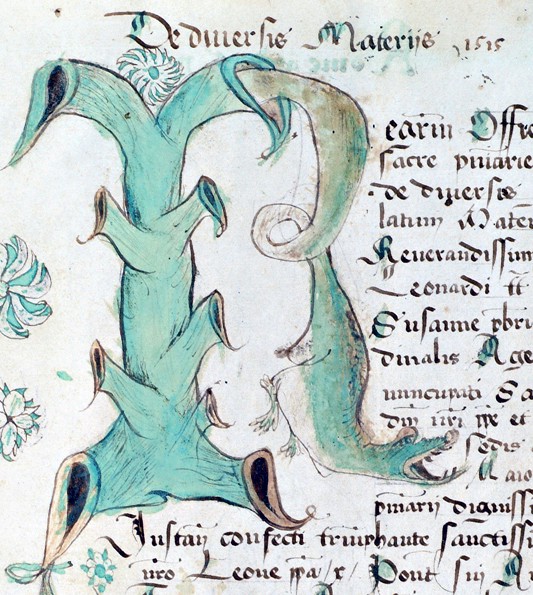 De diuersis Materijs 1515
R
Offi
sacre pniarie
de diuersis
latum Mater
Reuerandissim
Leonardi tt
Susanne pbri
dinalis Age
nuncupati Sa
dni nri ppe et
sedis
Maio
pniarij digniss
confecti triumphante sanctissi
nro Leone ppa x Pont sui